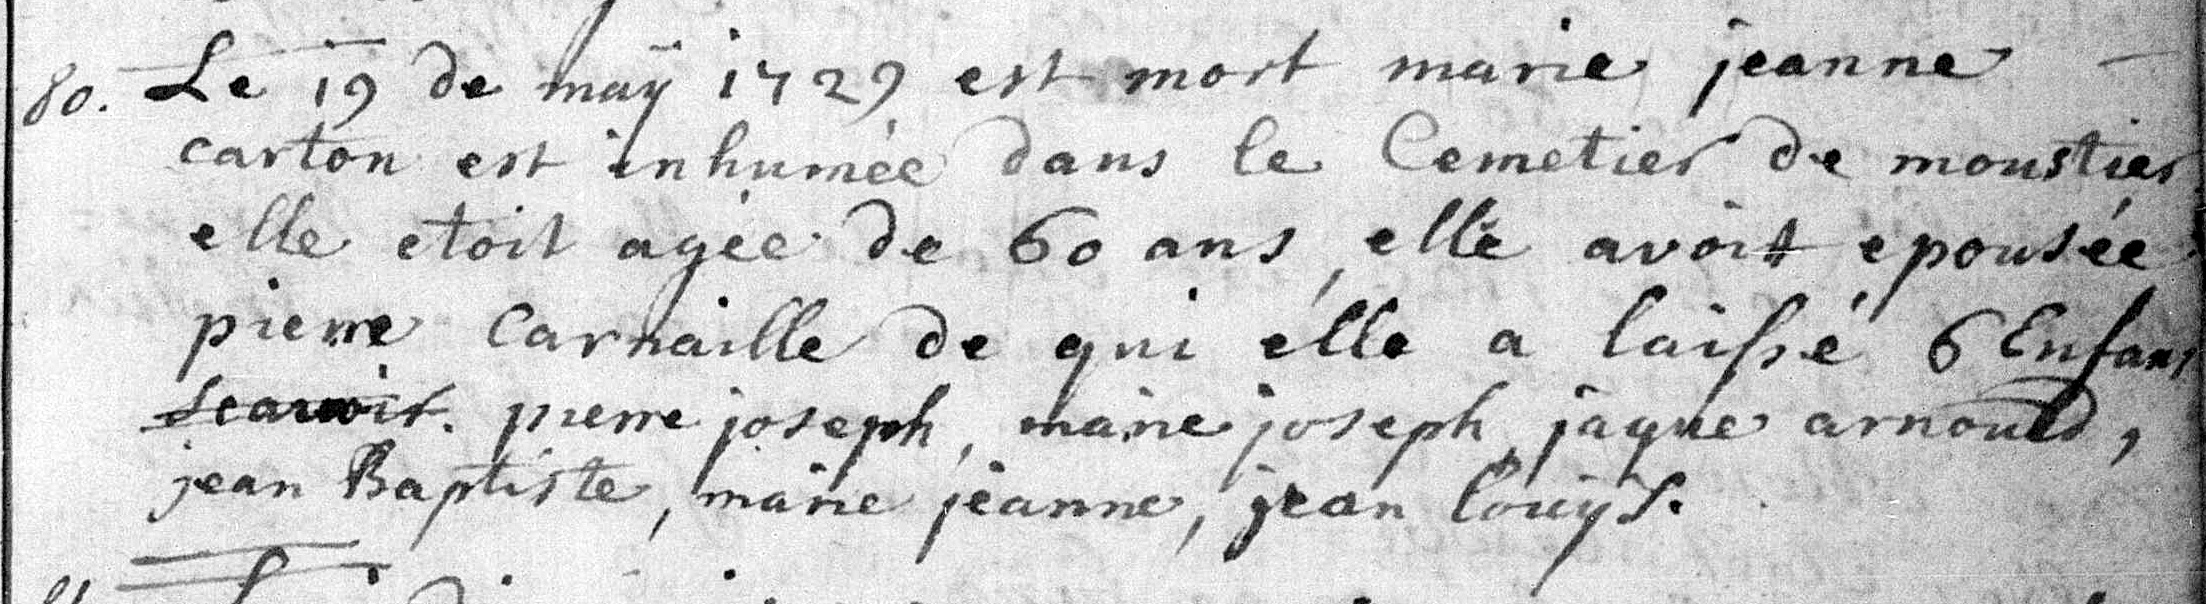 80. Le 19 de maÿ 1729 est mort marie jeanne
carton est inhumée dans le Cemetier de moustier
elle etoit agée de 60 ans, elle avoit epousée
pierre Carnaille de qui élle a laissé 6 Enfans
Scavoir. pierre joseph, marie joseph, jaque arnould,
jean Baptiste, marie jeanne, jean louÿs.